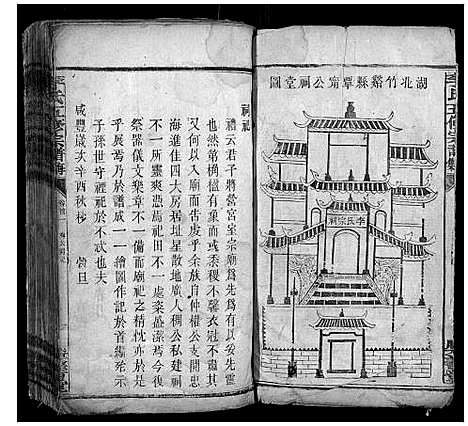 湖北竹谿縣覃甯公祠堂圖
李氏宗祠
李氏五修宗譜
祠記
禮云君子將營宮室宗廟為先為有以妥先靈
也然第構有棄而或黍稷不馨衣冠不肅其
何以入廟而告虔乎余族自仲權公支開忠
海進佳四大房居址星散地廣人稠公私建祠
不一所靈爽憑焉祀田不一處粢盛潔焉今復
祭器儀文樂章不一備而廟祀之精忱亦於是
乎展焉乃於譜成一一繪圖作記於首衞死示
子孫世守禋祀於不忒也夫
咸豐歲次辛酉秋杪 旦